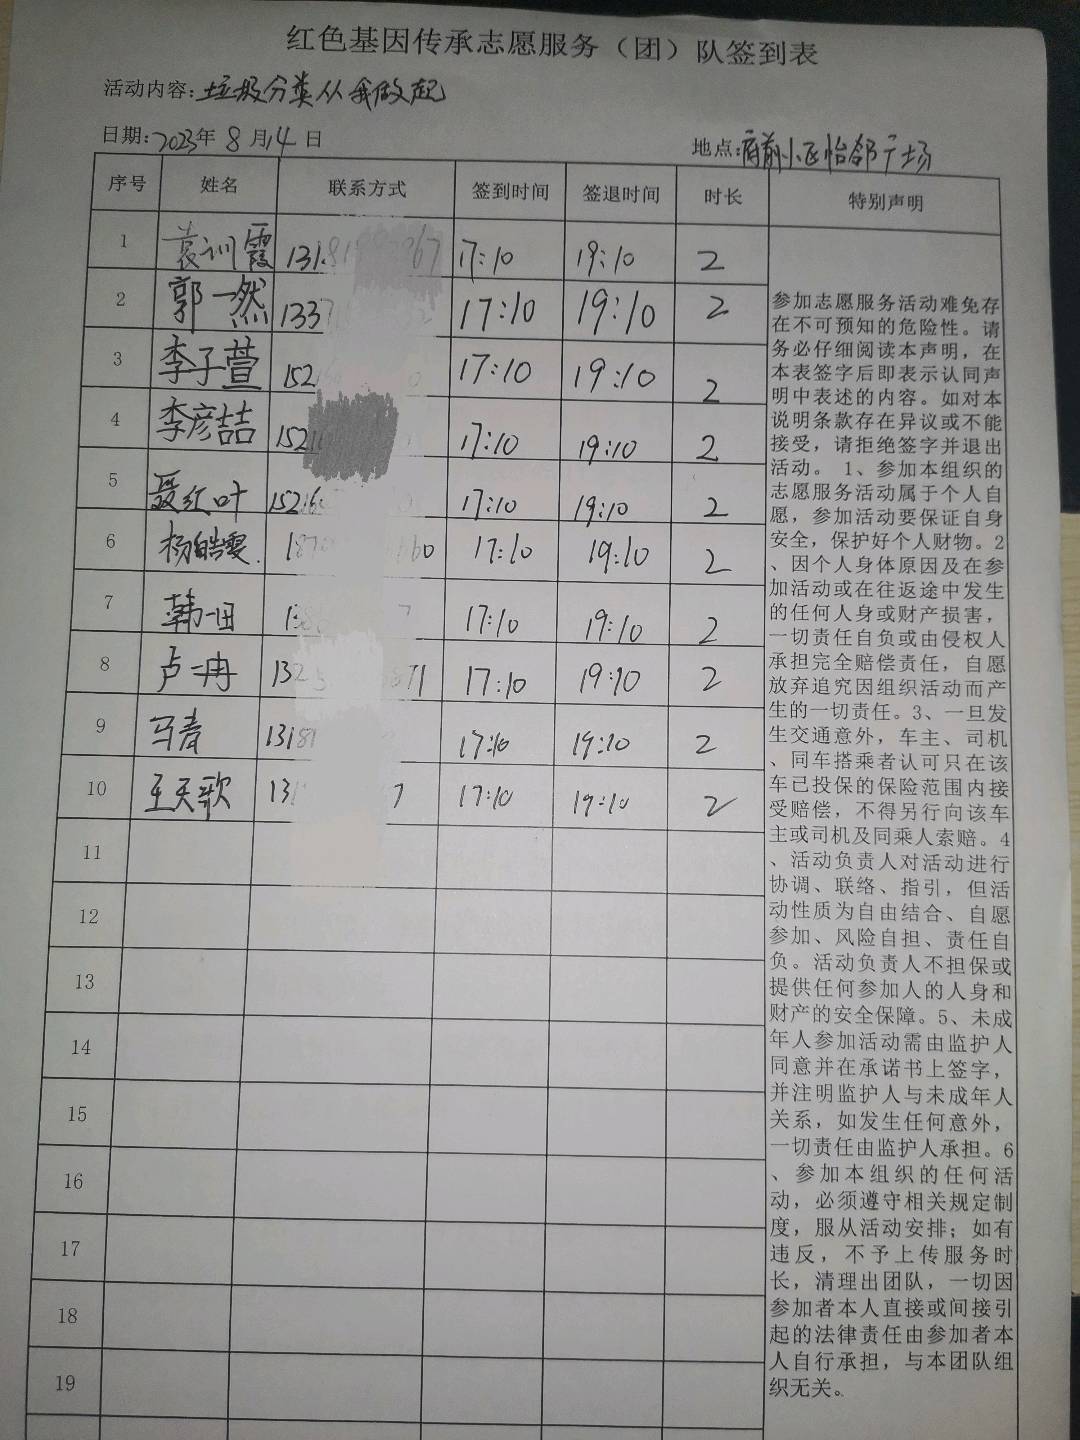 红色基因传承志愿服务（团）队签到表
活动内容：垃圾分类从我做起
日期：2023年 8 月 14 日 地点：府前小区怡邻广场
序号 姓名 联系方式 签到时间 签退时间 时长 特别声明
1 袁训霞 17:10 19:10 2
2 郭一然 133 17:10 19:10 2
3 李子萱 152 17:10 19:10 2
4 李彦喆 152 17:10 19:10 2
5 聂红叶 152 17:10 19:10 2
6 杨皓雯 17:10 19:10 2
7 韩一田 17:10 19:10 2
8 卢冉 132 17:10 19:10 2
9 马青 1318 17:10 19:10 2
10 王天歌 17:10 19:10 2
11
12
13
14
15
16
17
18
19
参加志愿服务活动难免存
在不可预知的危险性。请
务必仔细阅读本声明，在
本表签字后即表示认同声
明中表述的内容。如对本
说明条款存在异议或不能
接受，请拒绝签字并退出
活动。 1、参加本组织的
志愿服务活动属于个人自
愿，参加活动要保证自身
安全，保护好个人财物。2
、因个人身体原因及在参
加活动或在往返途中发生
的任何人身或财产损害，
一切责任自负或由侵权人
承担完全赔偿责任，自愿
放弃追究因组织活动而产
生的一切责任。3、一旦发
生交通意外，车主、司机
、同车搭乘者认可只在该
车已投保的保险范围内接
受赔偿，不得另行向该车
主或司机及同乘人索赔。4
、活动负责人对活动进行
协调、联络、指引，但活
动性质为自由结合、自愿
参加、风险自担、责任自
负。活动负责人不担保或
提供任何参加人的人身和
财产的安全保障。5、未成
年人参加活动需由监护人
同意并在承诺书上签字，
并注明监护人与未成年人
关系，如发生任何意外，
一切责任由监护人承担。6
、参加本组织的任何活
动，必须遵守相关规定制
度，服从活动安排；如有
违反，不予上传服务时
长，清理出团队，一切因
参加者本人直接或间接引
起的法律责任由参加者本
人自行承担，与本团队组
织无关。